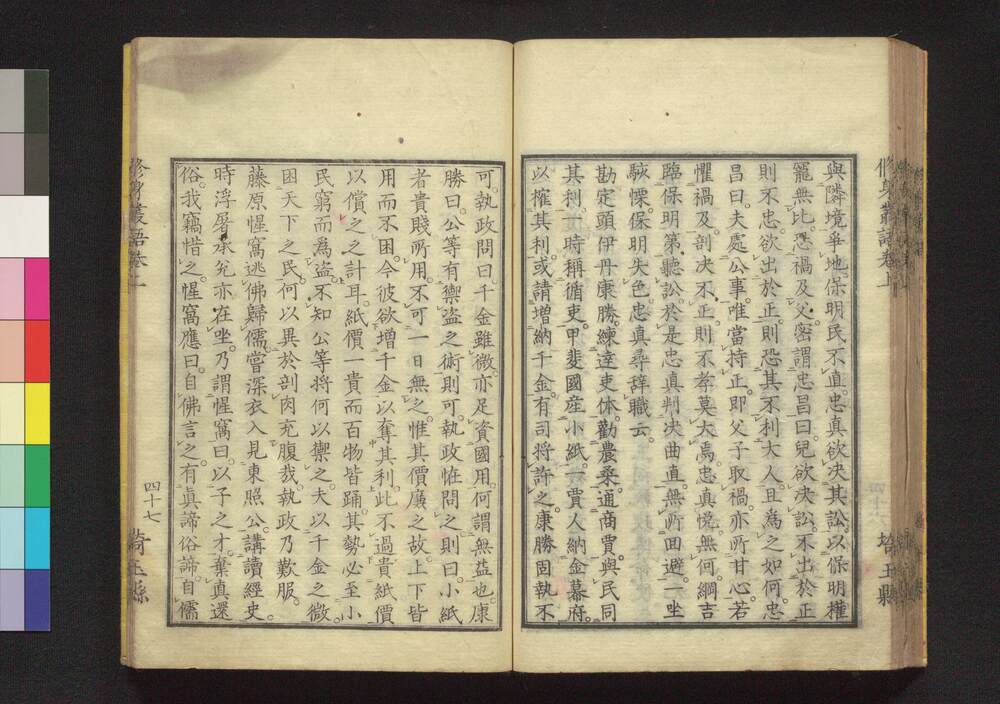 與隣境爭地。保明民不直。忠真欲決其訟。以保明權
寵無比。恐禍及父。密謂忠昌曰。兒欲決訟。不出於正
則不忠。欲出於正。則恐其不利大人。且為之如何。忠
昌曰。夫處公事。唯當持正。即父子取禍。亦所甘心。若
懼禍及。剖決不正。則不孝莫大焉。忠真悅。無何。綱吉
臨保明第聽訟。於是忠真判決曲直。無所回避。一坐
駭慄。保明失色。忠真尋辞職云。
勘定頭伊丹康勝。練達吏体。勸農桑。通商賈。與民同
其利。時稱循吏。甲斐國産小紙。賈人納金幕府。
以搉其利。或請増納千金。有司將許之。康勝固執不
可。執政問曰。千金雖微。亦足資國用。何謂無益也。康
勝曰。公等有禦盗之術則可。執政恠問之。則曰。小紙
者貴賤所用。不可一日無之。惟其價廉之故。上下皆
用而不困。今彼欲増千金以奪其利。此不過貴紙價
以償之之計耳。紙價一貴。而百物皆踊。其勢必至小
民窮而為盗。不知公等將何以禦之。夫以千金之微。
困天下之民。何以異於剖肉充腹我。執政乃歎服。
藤原惺窩逃佛歸儒。嘗深衣入見東照公。講讀經史。
時浮屠承兌亦在坐。乃謂惺窩曰。以子之才。棄真還
俗。我竊惜之。惺窩應曰。自佛言之。有真諦俗諦。自儒
修身叢語卷上
修身叢語卷上
四十七
埼玉縣
埼玉縣